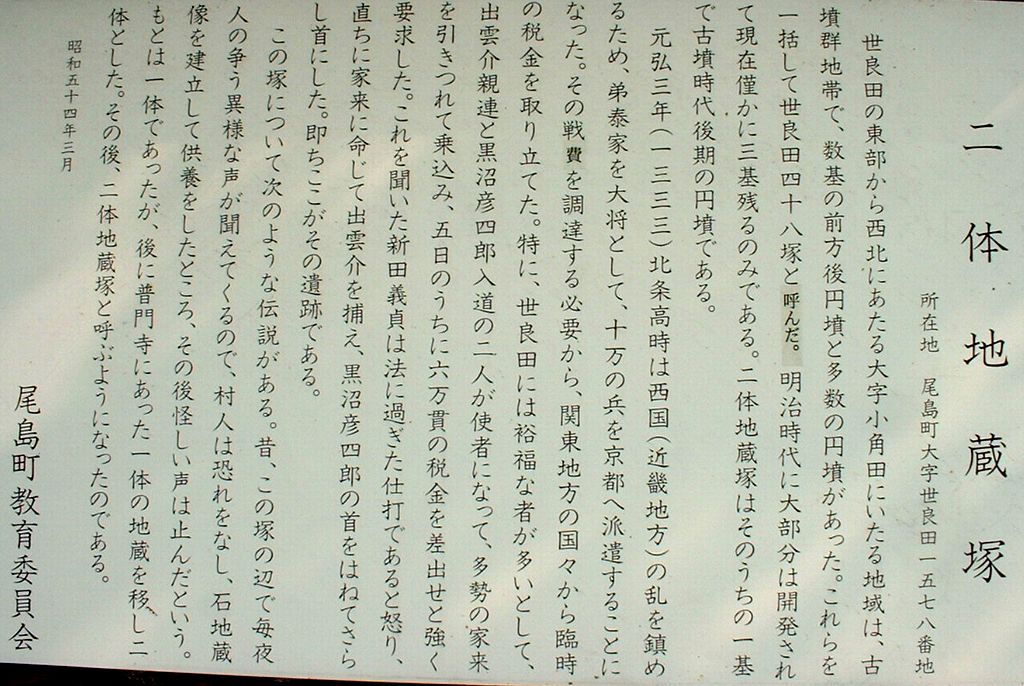 二体地蔵塚
所在地 尾島町大字世良田一五七八番地
世良田の東部から西北にあたる大字小角田にいたる地域は、古
墳群地帯で、数基の前方後円墳と多数の円墳があった。これらを
一括して世良田四十八塚と呼んだ。明治時代に大部分は開発され
て現在僅かに三基残るのみである。二体地蔵塚はそのうちの一基
で古墳時代後期の円墳である。
元弘三年(一三三三)北条高時は西国(近畿地方)の乱を鎮め
るため、弟泰家を大将として、十万の兵を京都へ派遣することに
なった。その戦費を調達する必要から、関東地方の国々から臨時
の税金を取り立てた。特に、世良田には裕福な者が多いとして、
出雲介親連と黒沼彦四郎入道の二人が使者になって、多勢の家来
を引きつれて乗込み、五日のうちに六万貫の税金を差出せと強く
要求した。これを聞いた新田義貞は法に過ぎた仕打であると怒り、
直ちに家来に命じて出雲介を捕え、黒沼彦四郎の首をはねてさら
し首にした。即ちここがその遺跡である。
この塚について次のような伝説がある。昔、この塚の辺で毎夜
人の争う異様な声が聞えてくるので、村人は恐れをなし、石地蔵
像を建立して供養をしたところ、その後怪しい声は止んだという。
もとは一体であったが、後に普門寺にあった一体の地蔵を移し二
体とした。その後、二体地蔵塚と呼ぶようになったのである。
昭和五十四年三月
尾島町教育委員会